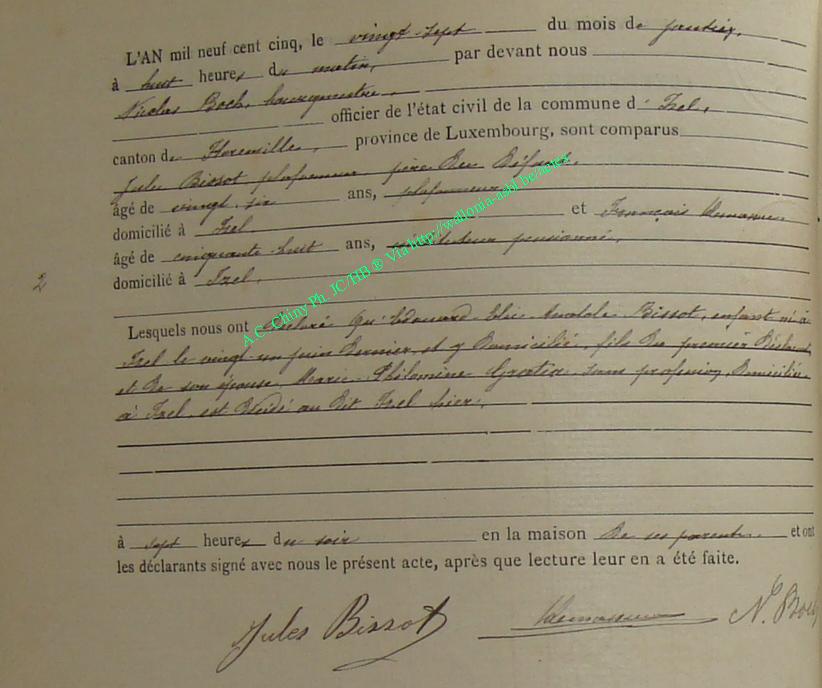 L'AN mil neuf cent cinq, le vingt-sept du mois de janvier,
à huit heures du matin, par devant nous
Nicolas Boch, bourgmestre,
officier de l'état civil de la commune d' Izel,
canton de Florenville, province de Luxembourg, sont comparus
Jules Bissot, plafonneur, père du défunt,
âgé de vingt six ans, plafonneur
domicilié à Izel et François
âgé de cinquante-huit ans, instituteur pensionné,
domicilié à Izel,
2
Lesquels nous ont déclaré qu'Edouard Elie Anatole Bissot, enfant né à
Izel le vingt un juin dernier, et y domicilié, fils du premier déclarant
et de son épouse Marie Philomène sans profession, domiciliée
à Izel, est décédé au dit Izel hier,
à sept heures du soir en la maison de ses parents, et ont
les déclarants signé avec nous le présent acte, après que lecture leur en a été faite.
Jules Bissot N. Boch
A.C. Chiny Ph. JC/HB ® Via http://wallonia-asbl.be/